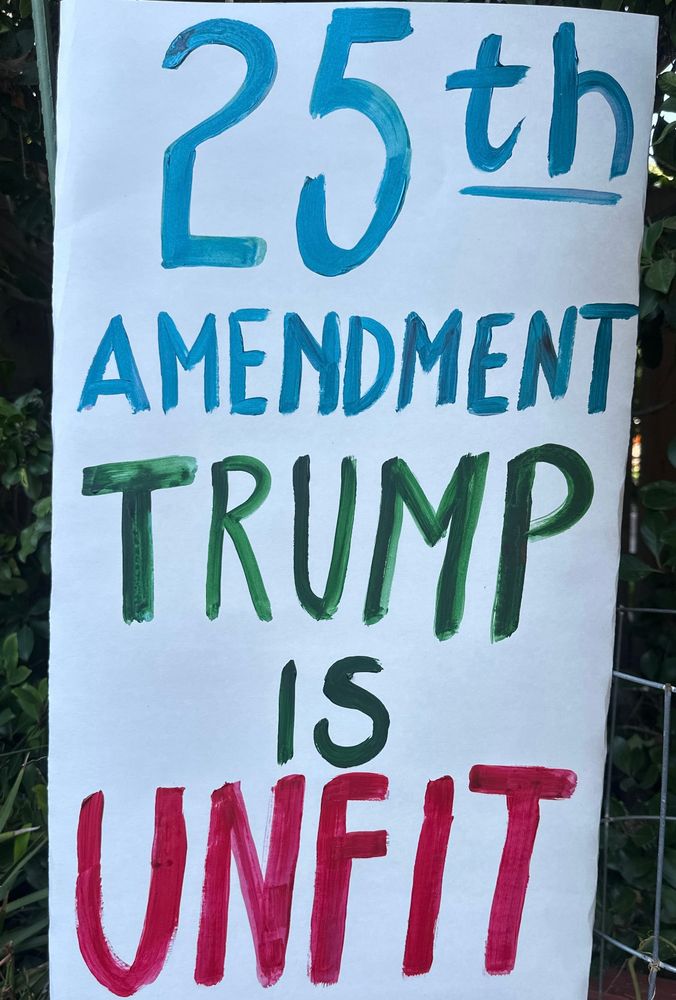 25th
AMENDMENT
TRUMP
IS
UNFIT